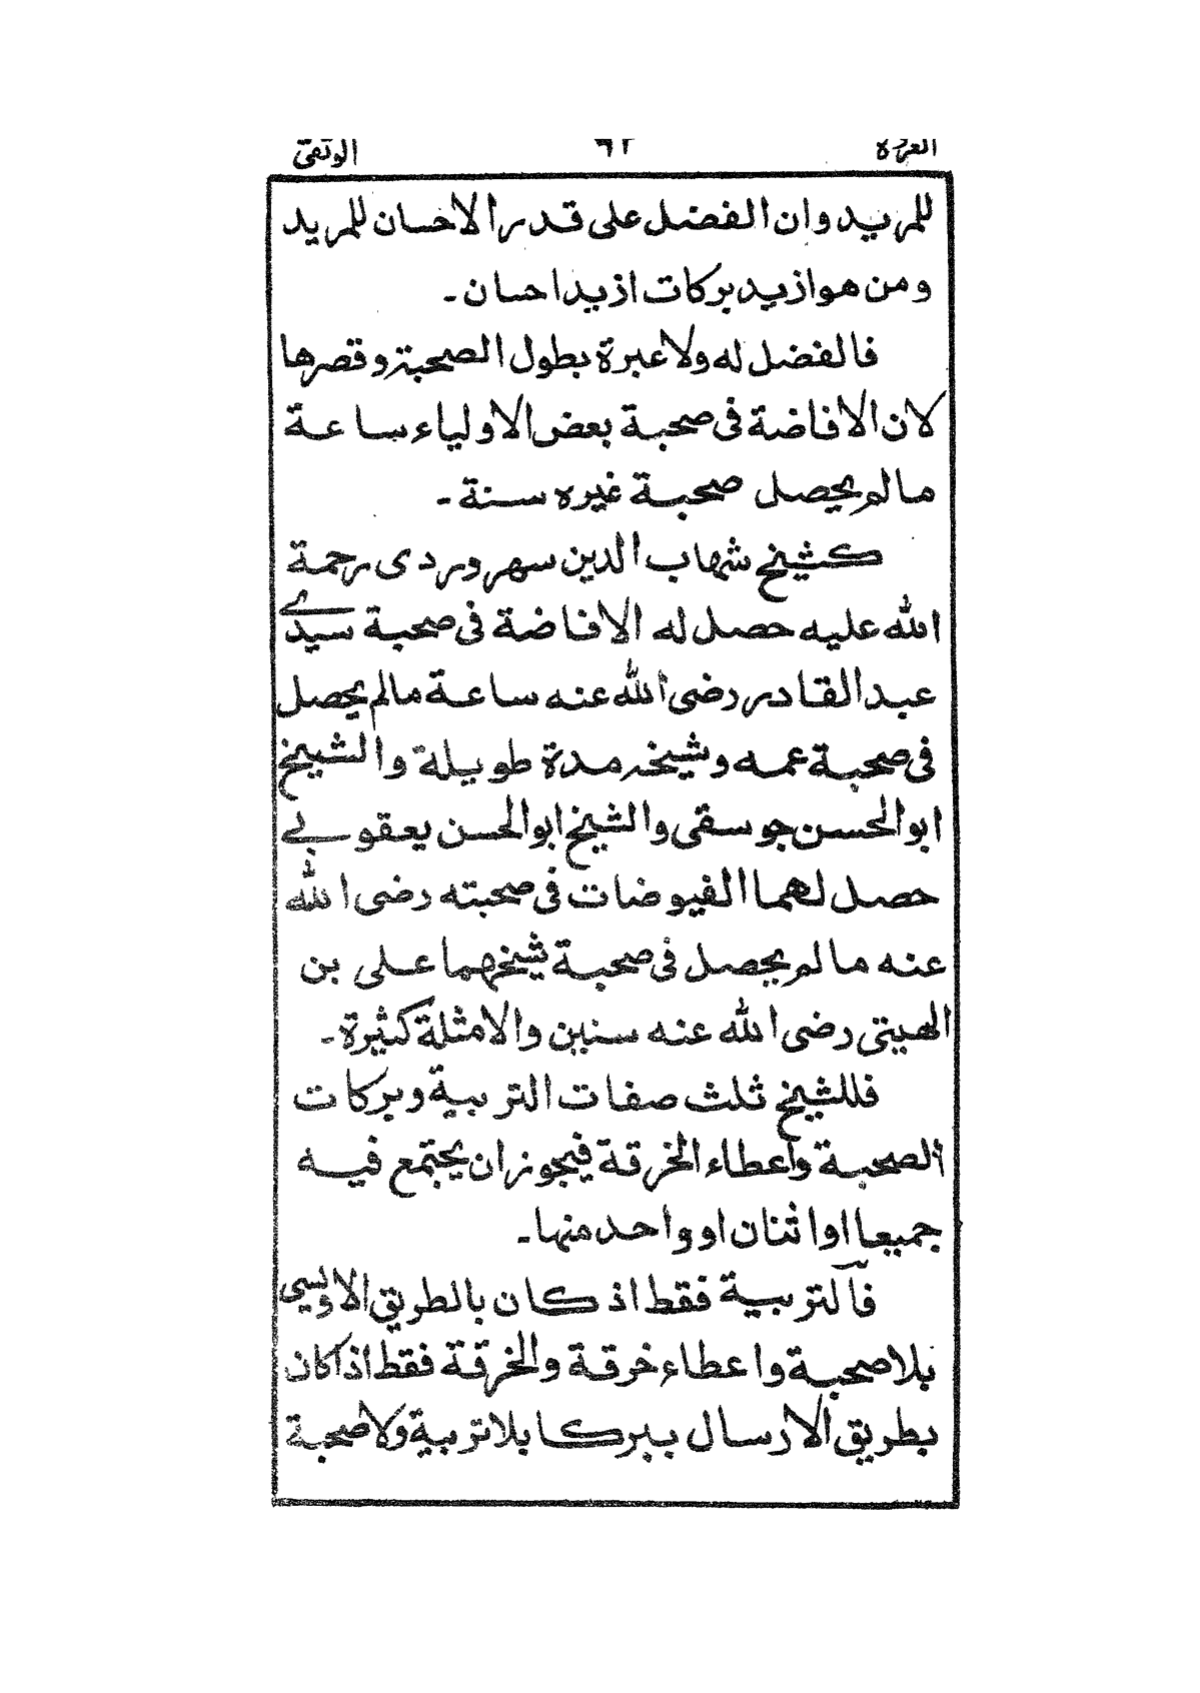 العروة ٦٢ الوثقى
للمريد وان الفضل على قدر الاحسان للمريد
ومن هو ازيد بركات ازيد احسان ـ
فالفضل له ولا عبرة بطول الصحبة وقصرها
لان الافاضة فى صحبة بعض الاولياء ساعة
مالم يحصل صحبة غيره سنة ـ
كشيخ شهاب الدين سهروردى رحمة
الله عليه حصل له الافاضة فى صحبة سيدے
عبد القادر رضى الله عنه ساعة مالم يحصل
فى صحبة عمه وشيخه مدة طويلة والشيخ
ابو الحسن جوسقى والشيخ ابو الحسن يعقوبے
حصل لهما الفيوضات فى صحبته رضى الله
عنه مالم يحصل فى صحبة شيخهما على بن
الهيتى رضى الله عنه سنين والامثلة كثيرة ـ
فللشيخ ثلث صفات التربية وبركات
الصحبة واعطاء الخرقة فيجوز ان يجتمع فيه
جميعا او اثنان او واحد منها ـ
فآلتربية فقط اذ كان بالطريق الاويسى
بلا صحبة واعطاء خرقة والخرقة فقط اذا كان
بطريق الارسال ببركا بلا تربية ولا صحبة